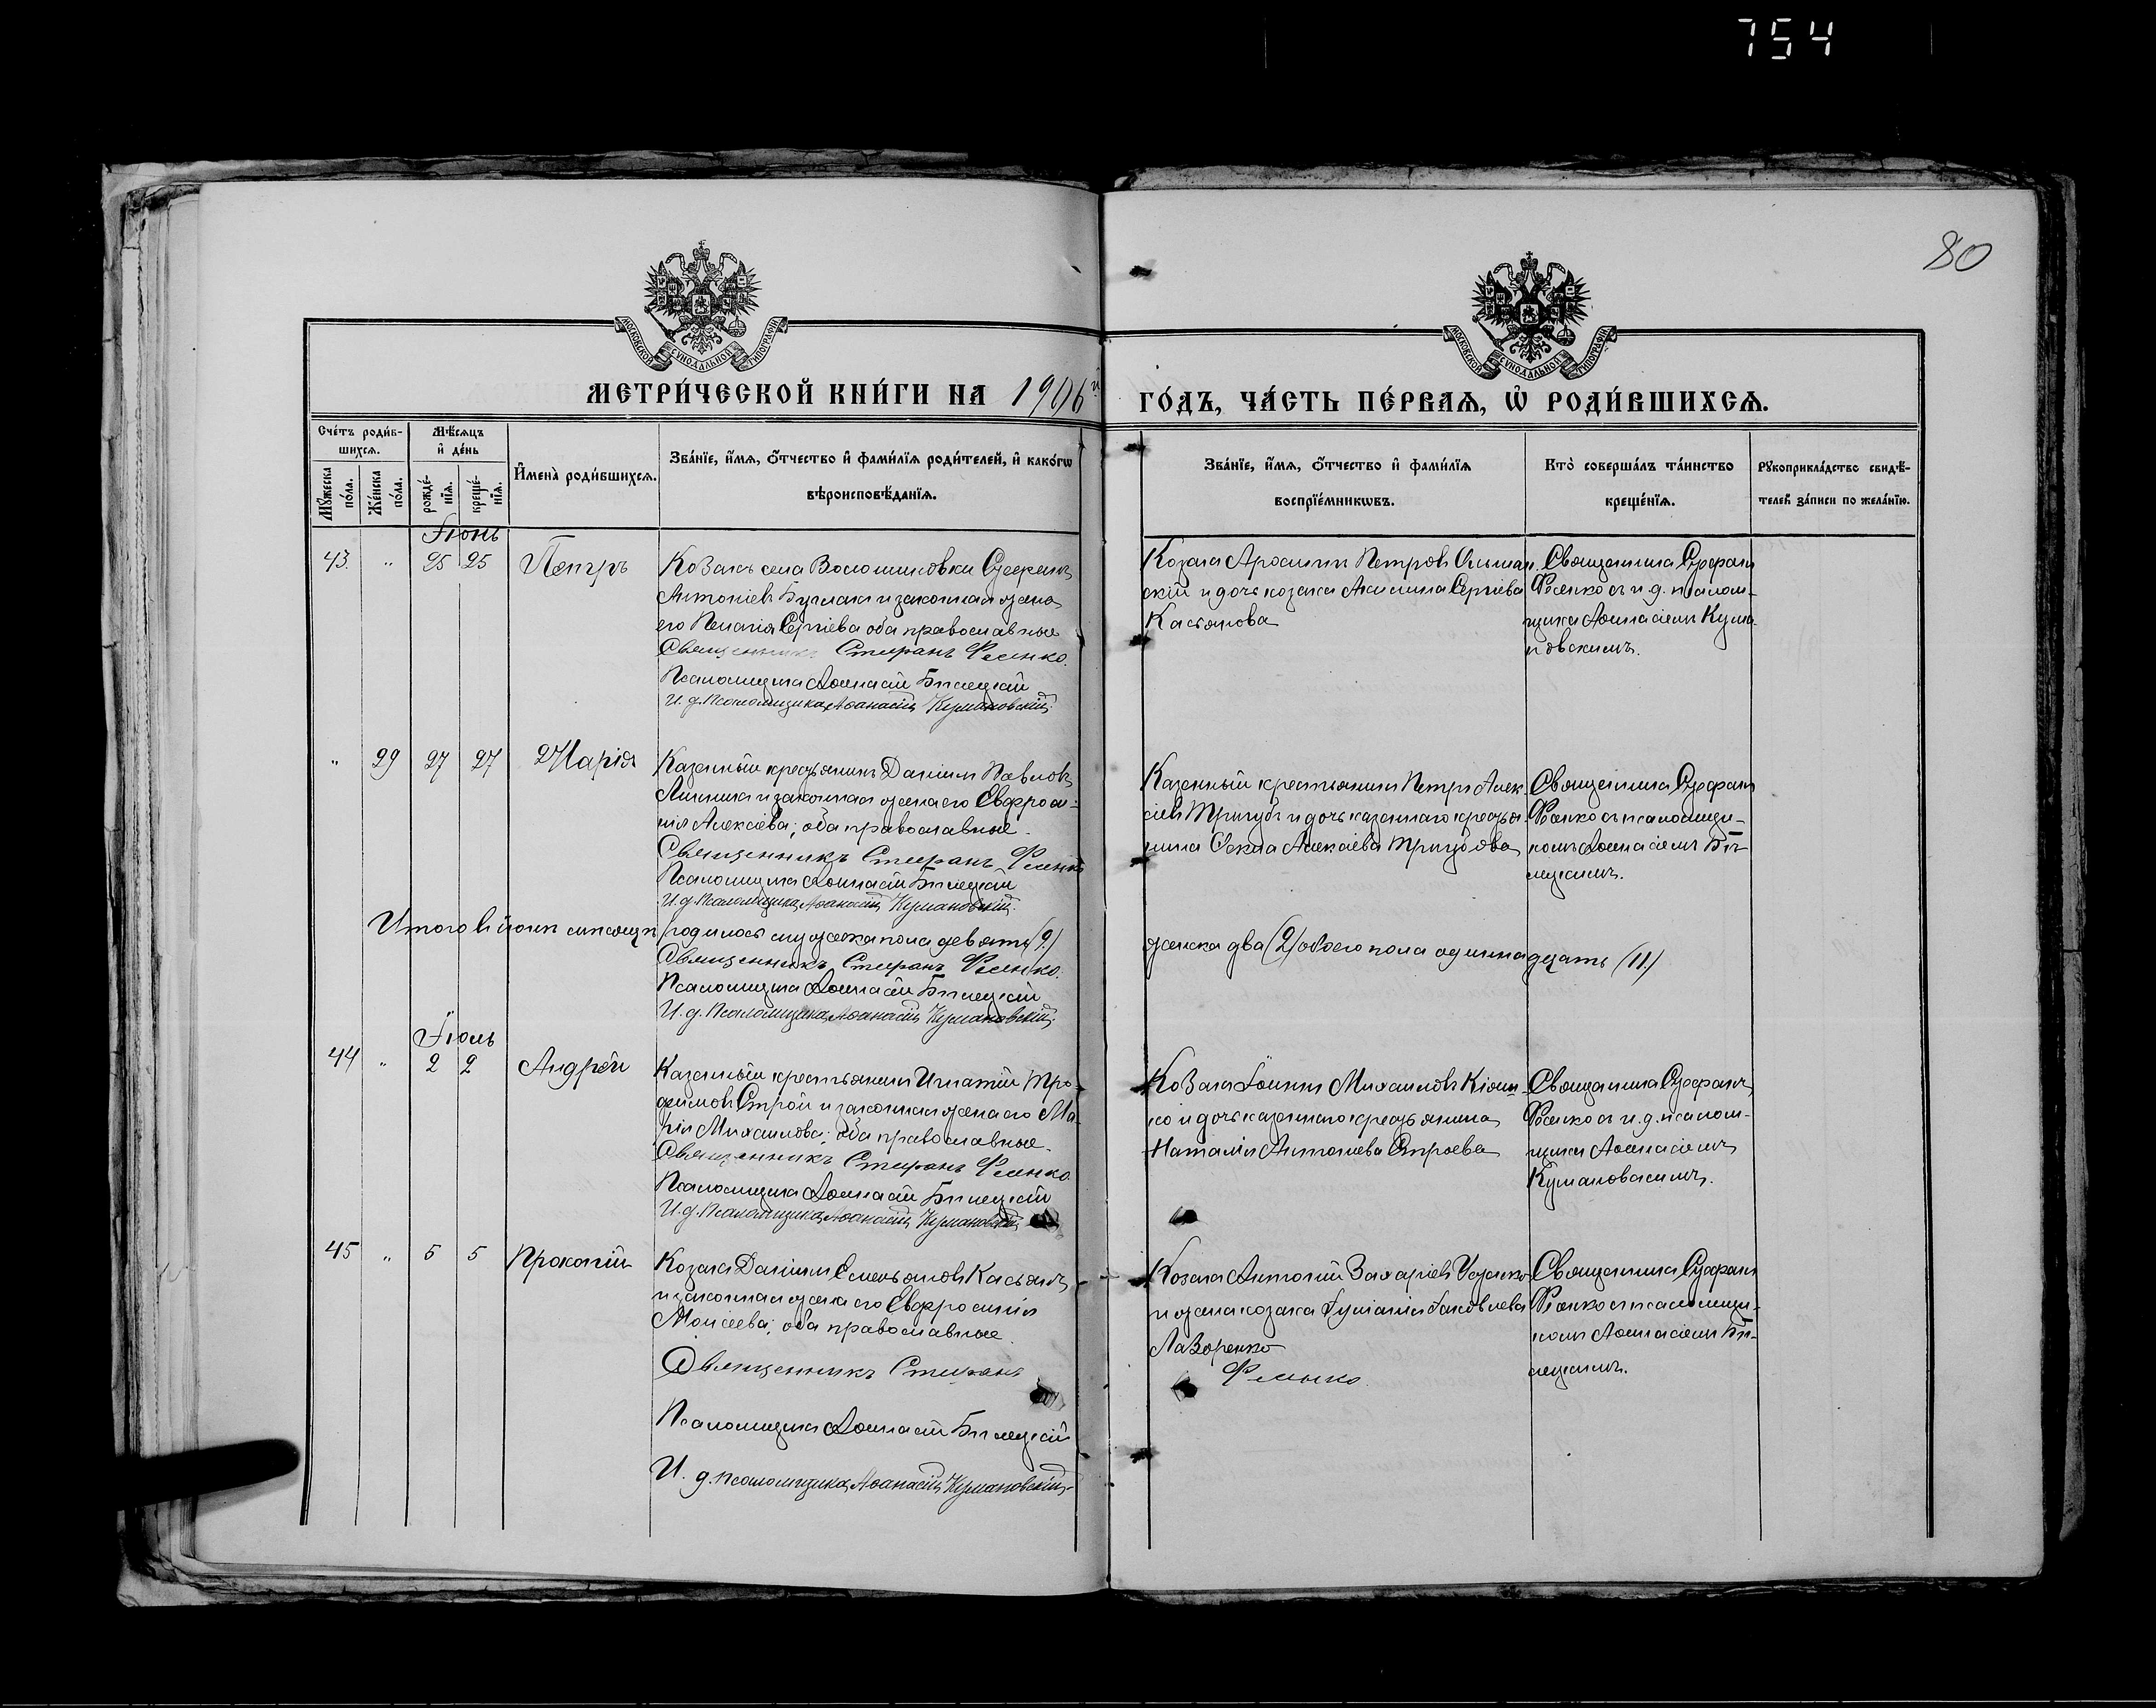 754
80
МОСКОВСКОЙ СУНОДАЛЬНОЙ ТИПОГРАФІИ
МОСКОВСКОЙ СУНОДАЛЬНОЙ ТИПОГРАФІИ
МЕТРИ́ЧЕСКОЙ КНИ́ГИ НА 1906й
ГО́ДЪ, ЧА́СТЬ ПЕ́РВАѦ, Ѡ РОДИ́ВШИХСѦ.
Сче́тъ роди́вшихсѧ.
Мѣ́сѧцъ и҆ де́нь
Мꙋ́жеска по́ла.
Же́нска по́ла.
рожде́нїѧ.
креще́нїѧ.
И҆мена̀ роди́вшихсѧ.
Зва́нїе, и҆́мѧ, ѻ҆́тчество и҆ фами́лїѧ роди́телей, и҆ како́гѡ
вѣроисповѣ́данїѧ.
Зва́нїе, и҆́мѧ, ѻ҆́тчество и҆ фами́лїѧ
воспрїе́мникѡвъ.
Кто̀ соверша́лъ та́инство
креще́нїѧ.
Рꙋкоприкла́дство свидѣ́-
телей за́писи по жела́нїю.
Іюнь
43 " 25 25 Петръ
Козакъ села Волошиновки Стефанъ
Антоніевъ и законная жена
его Пелагія Сергіева оба православные
Священникъ Стефанъ Фесенко.
Псаломщикъ Аѳанасій Билецкій
И. д. Псаломщика Аѳанасій Кумановскій
Козакъ Петровъ
скій и дочь козака Акилина Сергіева
Касьянова
Священникъ Стефанъ
Фесенко съ и. д. псалом-
щика Аѳанасіемъ Кума-
новскимъ.
" 29 27 27 Марія
Казенный крестьянинъ Даніилъ Павловъ
и законная жена его Евфроси-
нія Алексіева; оба православные.
Священникъ Стефанъ Фесенко
Псаломщикъ Аѳанасій Билецкій
И. д. Псаломщика Аѳанасій Кумановскій.
Казенный крестьянинъ Петръ Алек-
сіевъ Тригубъ и дочь казеннаго крестья-
нина Алексіева Тригубова
Священникъ Стефанъ
Фесенко съ псаломщи-
комъ Аѳанасіемъ Би-
лецкимъ.
Итого въ іюнѣ мѣсяцѣ родилось мужеска пола девять (9.)
женска два (2) обоего пола одиннадцать (11.)
Священникъ Стефанъ Фесенко.
Псаломщикъ Аѳанасій Билецкій
И. д. Псаломщика Аѳанасій Кумановскій.
Іюль
44 " 2 2 Андрей
Казенный крестьянинъ Игнатій Тро-
фимовъ Строй и законная жена его Ма-
рія Михаилова; оба православные.
Священникъ Стефанъ Фесенко.
Псаломщикъ Аѳанасій Билецкій
И. д. Псаломщика Аѳанасій Кумановскій
Козакъ Іоаннъ Михаиловъ
и дочь казеннаго крестьянина
Наталія Антоніева Строева
Священникъ Стефанъ
Фесенко съ и. д. псалом-
щика Аѳанасіемъ
Кумановскимъ.
45 " 5 5 Прокопій
Козакъ Даніилъ Емельяновъ Касьянъ
и законная жена его Евфросинія
Моисеева; оба православные.
Священникъ Стефанъ
Фесенко.
Псаломщикъ Аѳанасій Билецкій
И. д. псаломщика Аѳанасій Кумановскій
Козакъ Антоній Захаріевъ
и жена козака Іуліанія Іаковлева
Лазоренко
Священникъ Стефанъ
Фесенко съ псаломщи-
комъ Аѳанасіемъ Би-
лецкимъ.